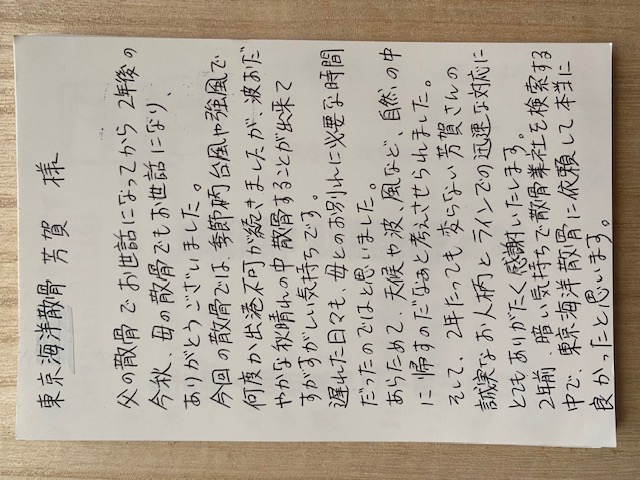 東京海洋散骨 芳賀 様
父の散骨でお世話になってから2年後の
今秋、母の散骨でもお世話になり、
ありがとうございました。
今回の散骨では、季節柄台風や強風で
何度か出港不可が続きましたが、波おだ
やかな秋晴れの中散骨することが出来て
すがすがしい気持ちです。
遅れた日々も、母とのお別れに必要な時間
だったのではと思いました。
あらためて、天候や波、風など、自然の中
に帰すのだなあと考えさせられました。
そして、2年たっても変らない芳賀さんの
誠実なお人柄とラインでの迅速な対応に
とてもありがたく感謝いたします。
2年前、暗い気持ちで散骨業社を検索する
中で、東京海洋散骨に依頼して本当に
良かったと思います。